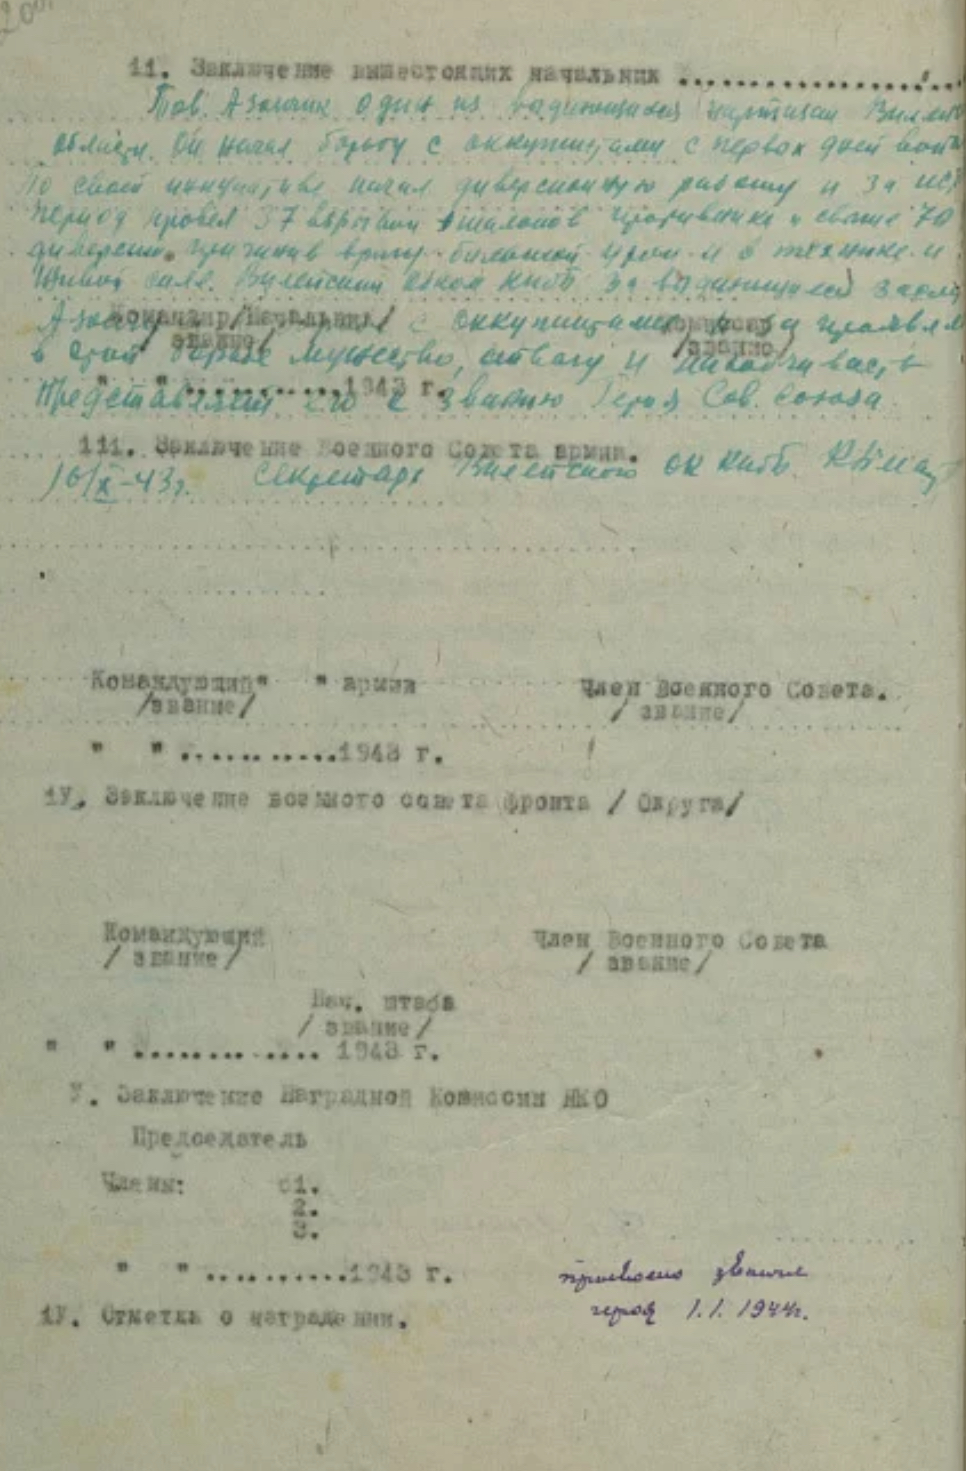 200
11. Заключение вышестоящих начальник
Тов. Азончик один из выдающихся партизан Вилей
области. Он начал борьбу с оккупантами с первых дней войн
По своей инициативе начал диверсионную работу и за
период провел 37 взрывов эшелонов противника и свыше 70
диверсий, причинив врагу большой урон и в технике и
живой силе. Вилейский обком КП(б)Б за выдающиеся
Командир/Начальник/
/звание/
/звание/
с оккупантами и проявл
в этой борьбе мужество, отвагу и находчивость
" " ...........1943 г.
Представляет его к званию Героя Сов. Союза.
111. Заключение Военного Совета армии.
16/X-43г. Секретарь Вилейского ОК КП(б)Б
Командующий " " армии Член Военного Совета.
/звание/ /звание/
" " ...........1943 г.
1У. Заключение военного совета фронта / Округа/
Командующий Член Военного Совета
/звание/ /звание/
Нач. штаба
/звание/
" " ............. 1943 г.
У. Заключение Наградной Комиссии НКО
Председатель
Члены: 1.
2.
3.
" " ...........1943 г.
присвоено звание
героя 1.1.1944г.
1У. Отметка о награждении.